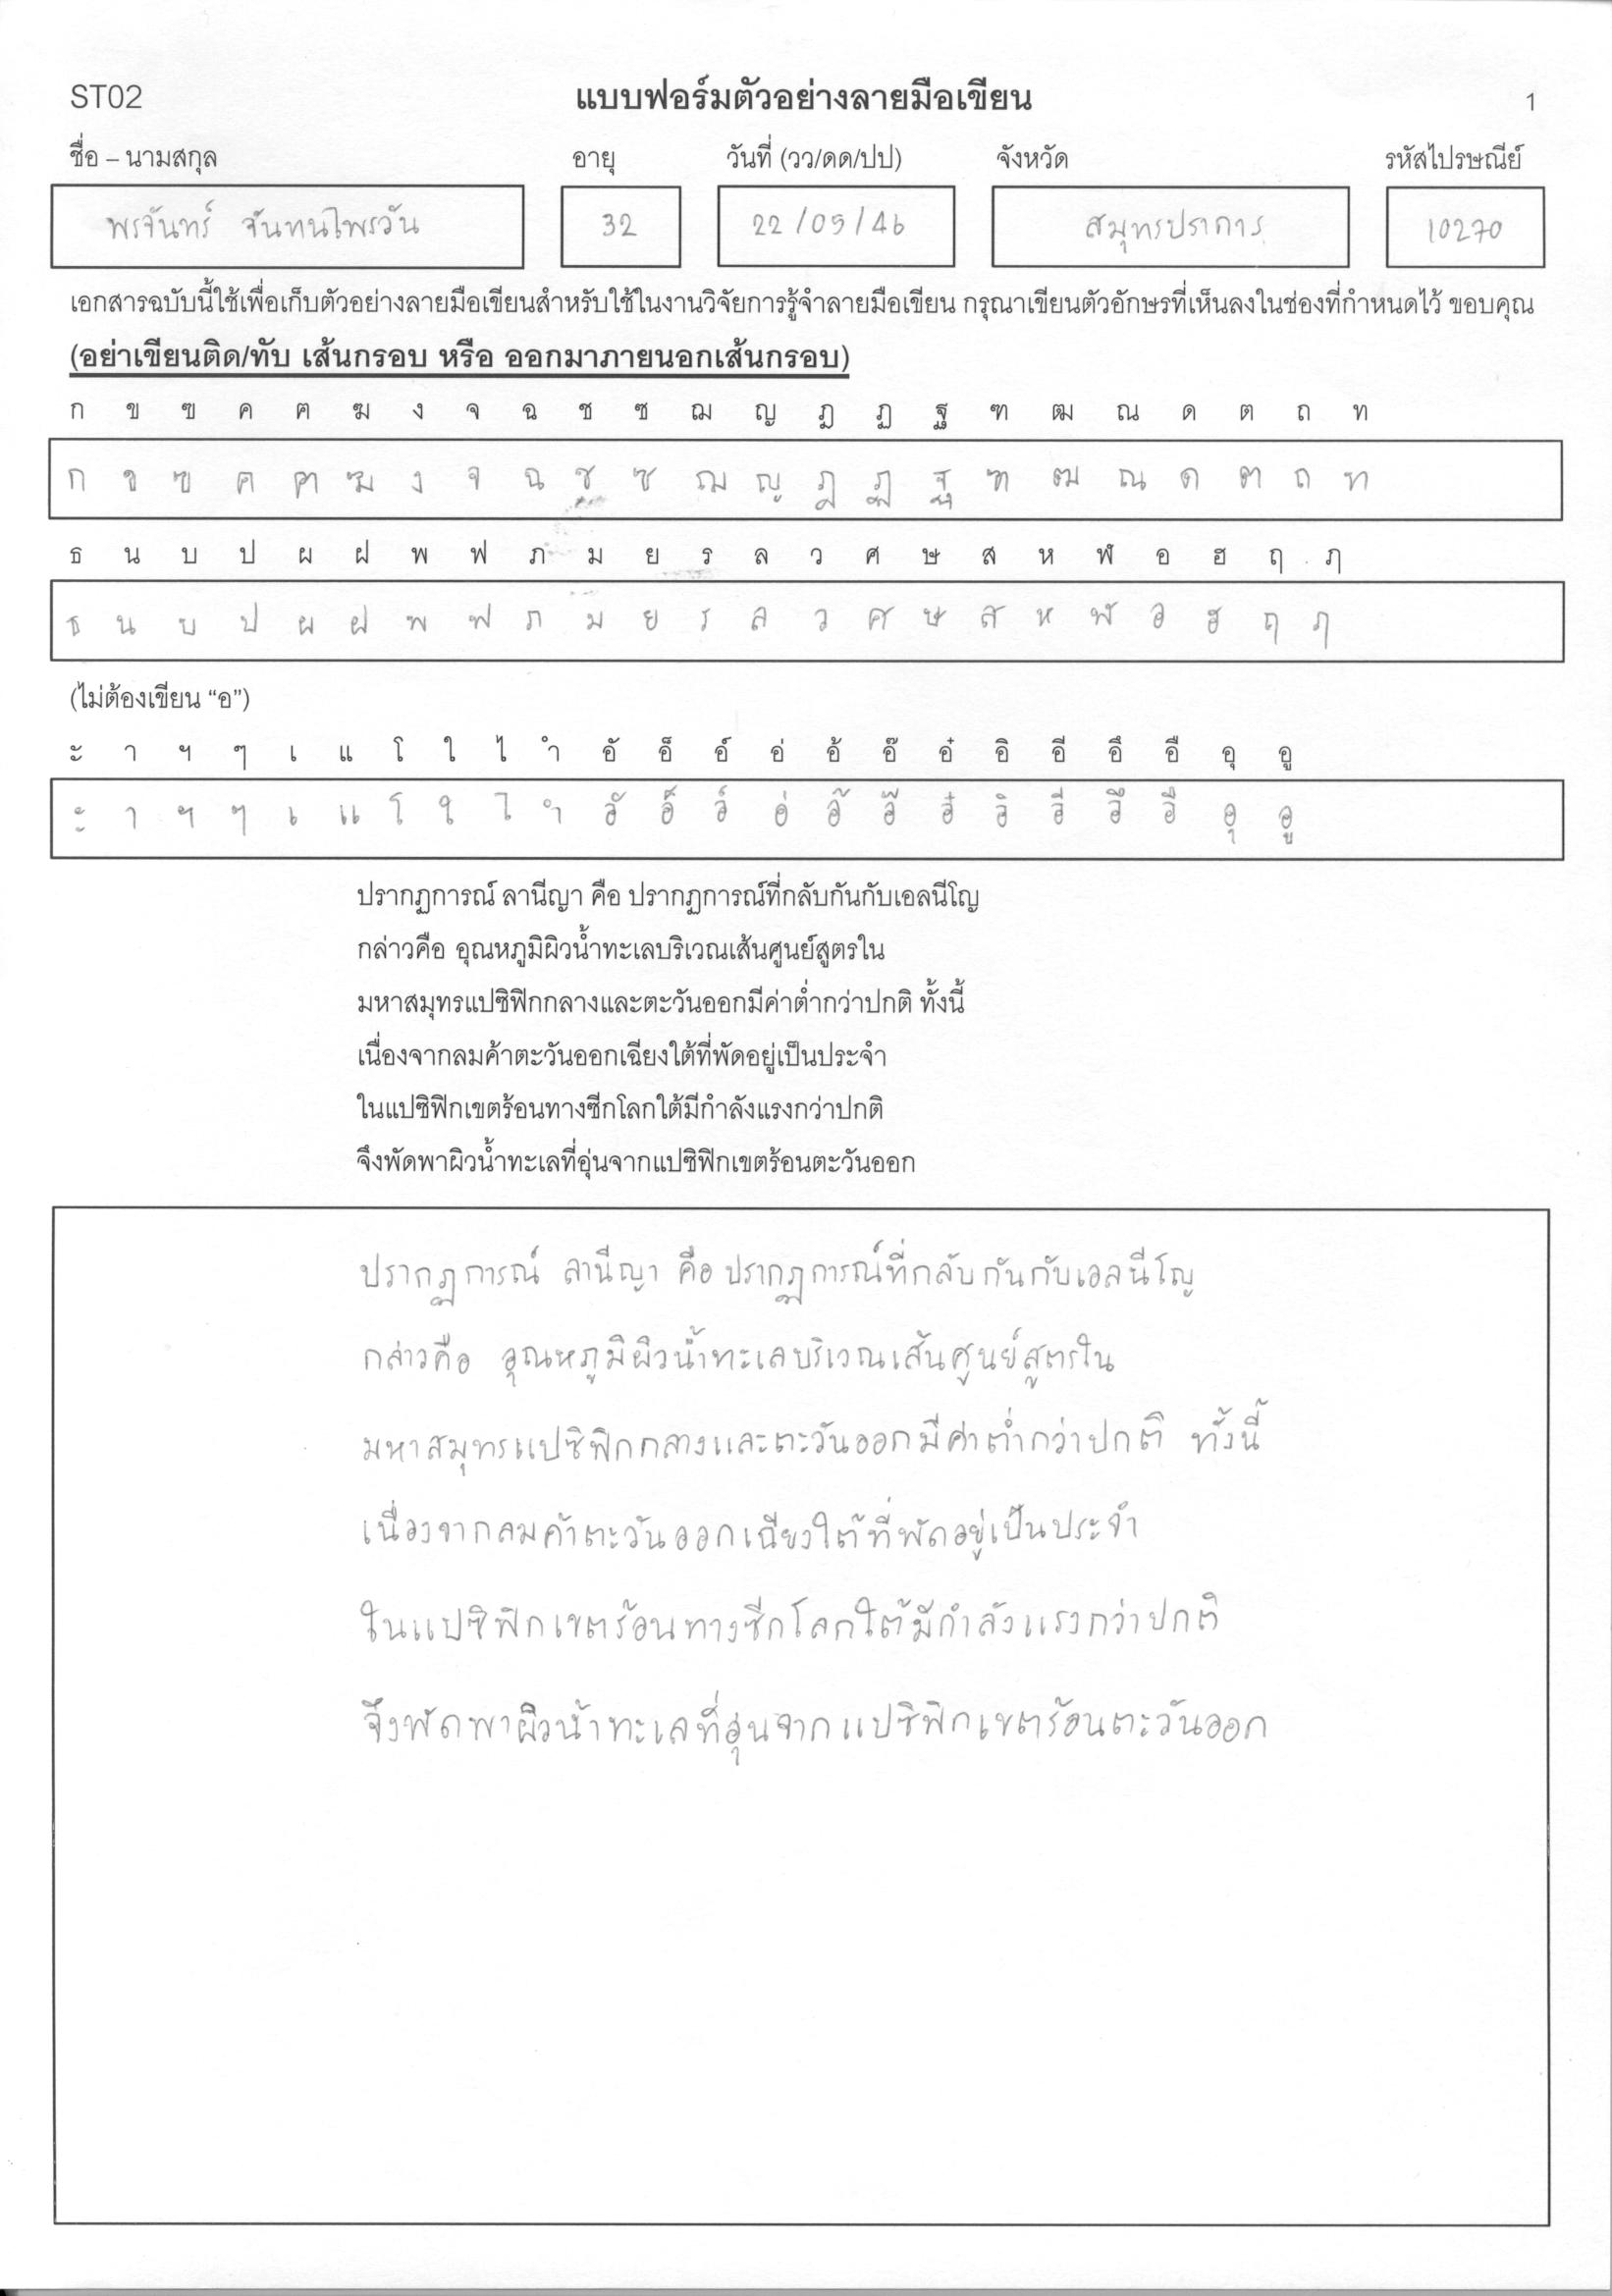 ST02 แบบฟอร์มตัวอย่างลายมือเขียน 1
ชื่อ – นามสกุล อายุ วันที่ (วว/ดด/ปป) จังหวัด รหัสไปรษณีย์
พรจันทร์ จันทนไพรวัน 32 22/05/46 สมุทรปราการ 10270
เอกสารฉบับนี้ใช้เพื่อเก็บตัวอย่างลายมือเขียนสำหรับใช้ในงานวิจัยการรู้จำลายมือเขียน กรุณาเขียนตัวอักษรที่เห็นลงในช่องที่กำหนดไว้ ขอบคุณ
(อย่าเขียนติด/ทับ เส้นกรอบ หรือ ออกมาภายนอกเส้นกรอบ)
ก ข ฃ ค ฅ ฆ ง จ ฉ ช ซ ฌ ญ ฎ ฏ ฐ ฑ ฒ ณ ด ต ถ ท
ก ข ฃ ค ฅ ฆ ง จ ฉ ช ซ ฌ ญ ฎ ฏ ฐ ฑ ฒ ณ ด ต ถ ท
ธ น บ ป ผ ฝ พ ฟ ภ ม ย ร ล ว ศ ษ ส ห ฬ อ ฮ ฤ ฦ
ธ น บ ป ผ ฝ พ ฟ ภ ม ย ร ล ว ศ ษ ส ห ฬ อ ฮ ฤ ฦ
(ไม่ต้องเขียน “อ”)
ะ า ฯ ๆ เ แ โ ใ ไ ำ อั อ็ อ์ อ่ อ้ อ๊ อ๋ อิ อี อึ อื อุ อู
ะ า ฯ ๆ เ แ โ ใ ไ ำ อั อ็ อ์ อ่ อ้ อ๊ อ๋ อิ อี อึ อื อุ อู
ปรากฏการณ์ ลานีญา คือ ปรากฏการณ์ที่กลับกันกับเอลนีโญ
กล่าวคือ อุณหภูมิผิวน้ำทะเลบริเวณเส้นศูนย์สูตรใน
มหาสมุทรแปซิฟิกกลางและตะวันออกมีค่าต่ำกว่าปกติ ทั้งนี้
เนื่องจากลมค้าตะวันออกเฉียงใต้ที่พัดอยู่เป็นประจำ
ในแปซิฟิกเขตร้อนทางซีกโลกใต้มีกำลังแรงกว่าปกติ
จึงพัดพาผิวน้ำทะเลที่อุ่นจากแปซิฟิกเขตร้อนตะวันออก
ปรากฏการณ์ ลานีญา คือ ปรากฏการณ์ที่กลับกันกับเอลนีโญ
กล่าวคือ อุณหภูมิผิวน้ำทะเลบริเวณเส้นศูนย์สูตรใน
มหาสมุทรแปซิฟิกกลางและตะวันออกมีค่าต่ำกว่าปกติ ทั้งนี้
เนื่องจากลมค้าตะวันออกเฉียงใต้ที่พัดอยู่เป็นประจำ
ในแปซิฟิกเขตร้อนทางซีกโลกใต้มีกำลังแรงกว่าปกติ
จึงพัดพาผิวน้ำทะเลที่อุ่นจากแปซิฟิกเขตร้อนตะวันออก